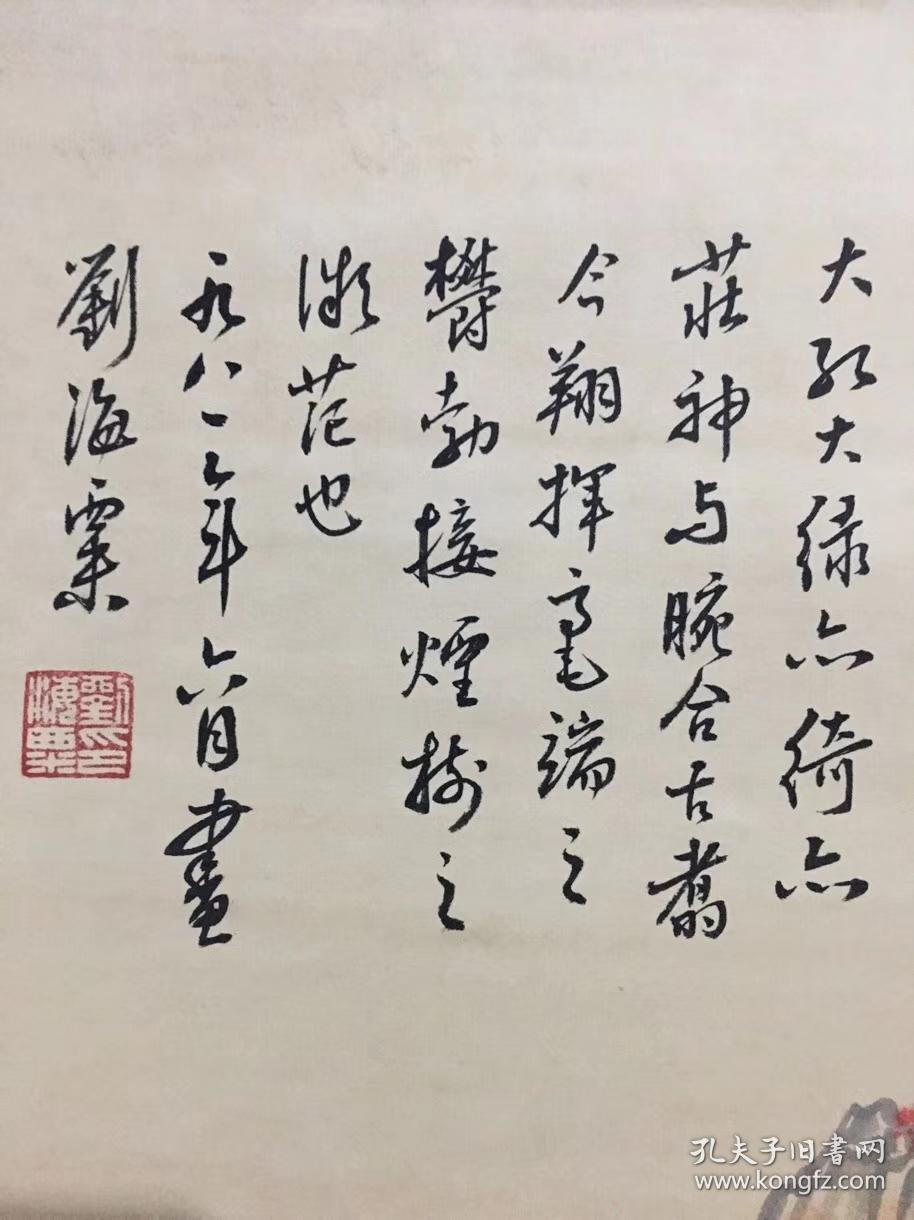 大红大绿亦绮亦
莊神与腕合古翥
今翔挥毫端之
欝勃接煙树之
微茫也
一九八一年六月畫
劉海粟
劉海粟印
孔夫子旧書网
www.kongfz.com